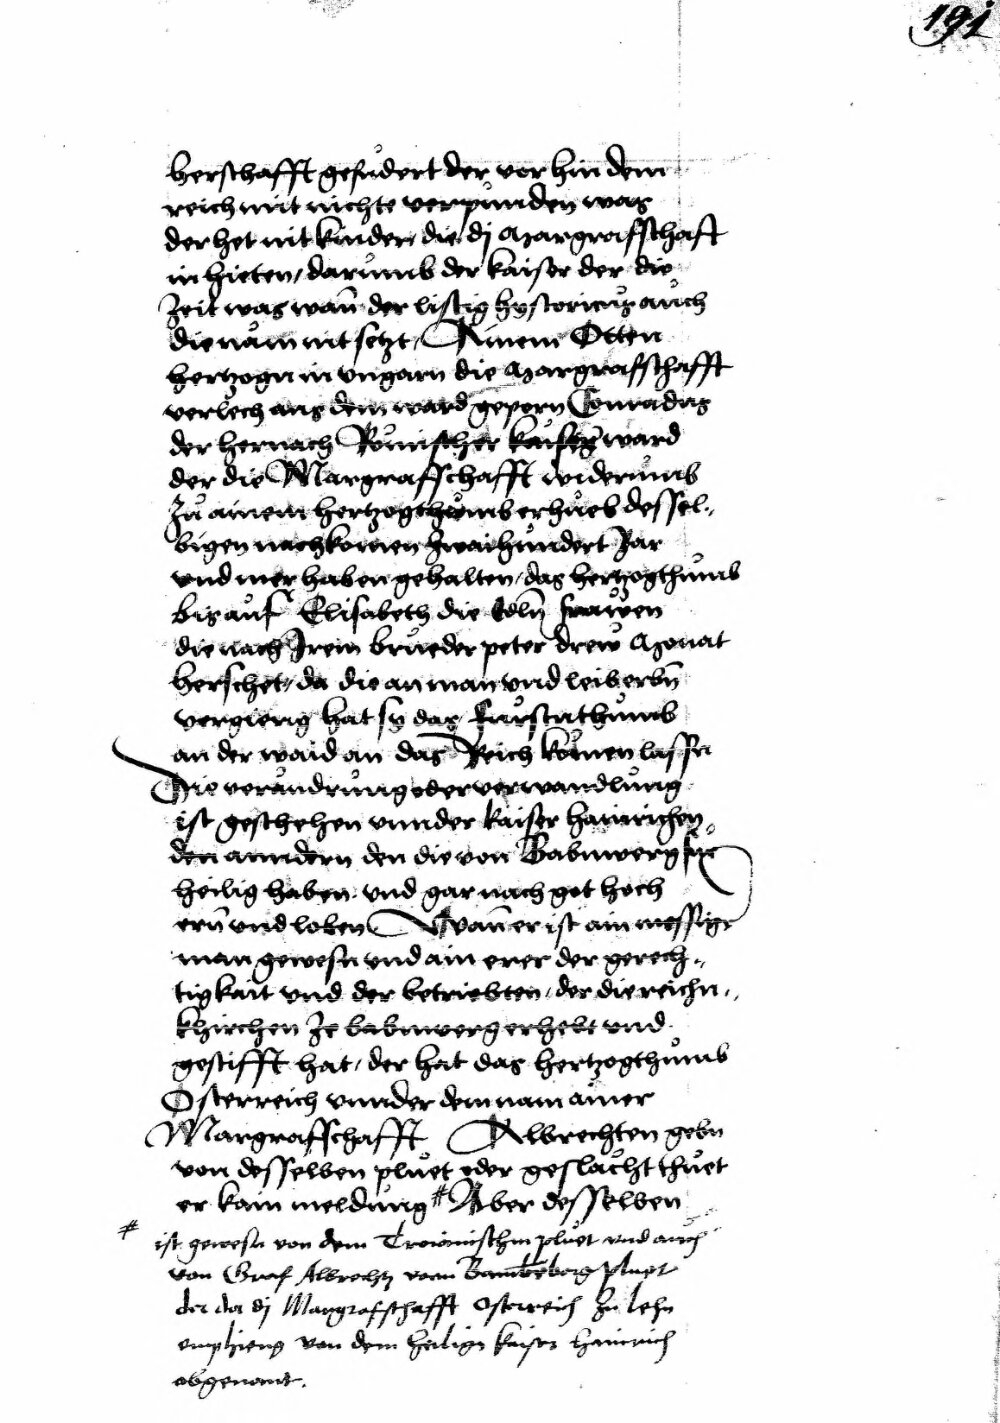 191
herschafft gesudert der vor hin dem
reich mit nichte verpunden was
der het nit kinder, die dj Margrafschaft
in hieten, darumb der kaiser der die
Zeit was wan̄ der listig hystoricus auch
die nam nit setzt, Ainem Otten
hertzogn in vngarn die Margrafschafft
verlech aus dem ward geporn Conradus
der hernach Römischer kaiser ward
der die Margrafschafft widerumb
Zu ainem hertzogthumb erhueb dessel„
bigen nachkomen Zwaihundert Jar
vnd mer haben gehalten, das hertzogthumb
bis auf Elisabeth die edln̄ frawen
die nach Irem brueder peter drew Monat
herschet, da die an man vnd leiberbn̄
vergieng hat sy das Furstnthumb
an der waid an das Reich komen lassn
Die verandrung oder verwandlung
ist geschehen vnnder kaiser hainrichen
den anndern den die von Babmwerg für
heilig haben. vnd gar nach got hoch
ern̄ vnd loben Wan̄ er ist ain messiger
man gewesn vnd ain erer der gerech„
tigkait vnd der betriebten, der die reichn„
khirchen Ze babmwerg erhebt vnd
gestifft hat, der hat das hertzogthumb
Osterreich vnnder dem nam ainer
Margrafschafft Albrechten gebn
von desselben pluet oder geslacht thuet
er kain meldung # Aber desselben
# ist gewesn von dem Troianischn pluet vnd auch
von Graf Albrechtz vonn Bamberg pluet
der der dj Margrafschafft Osterreich Zu lehn
emphieng von dem heilign kaiser hainrich
obgenant.